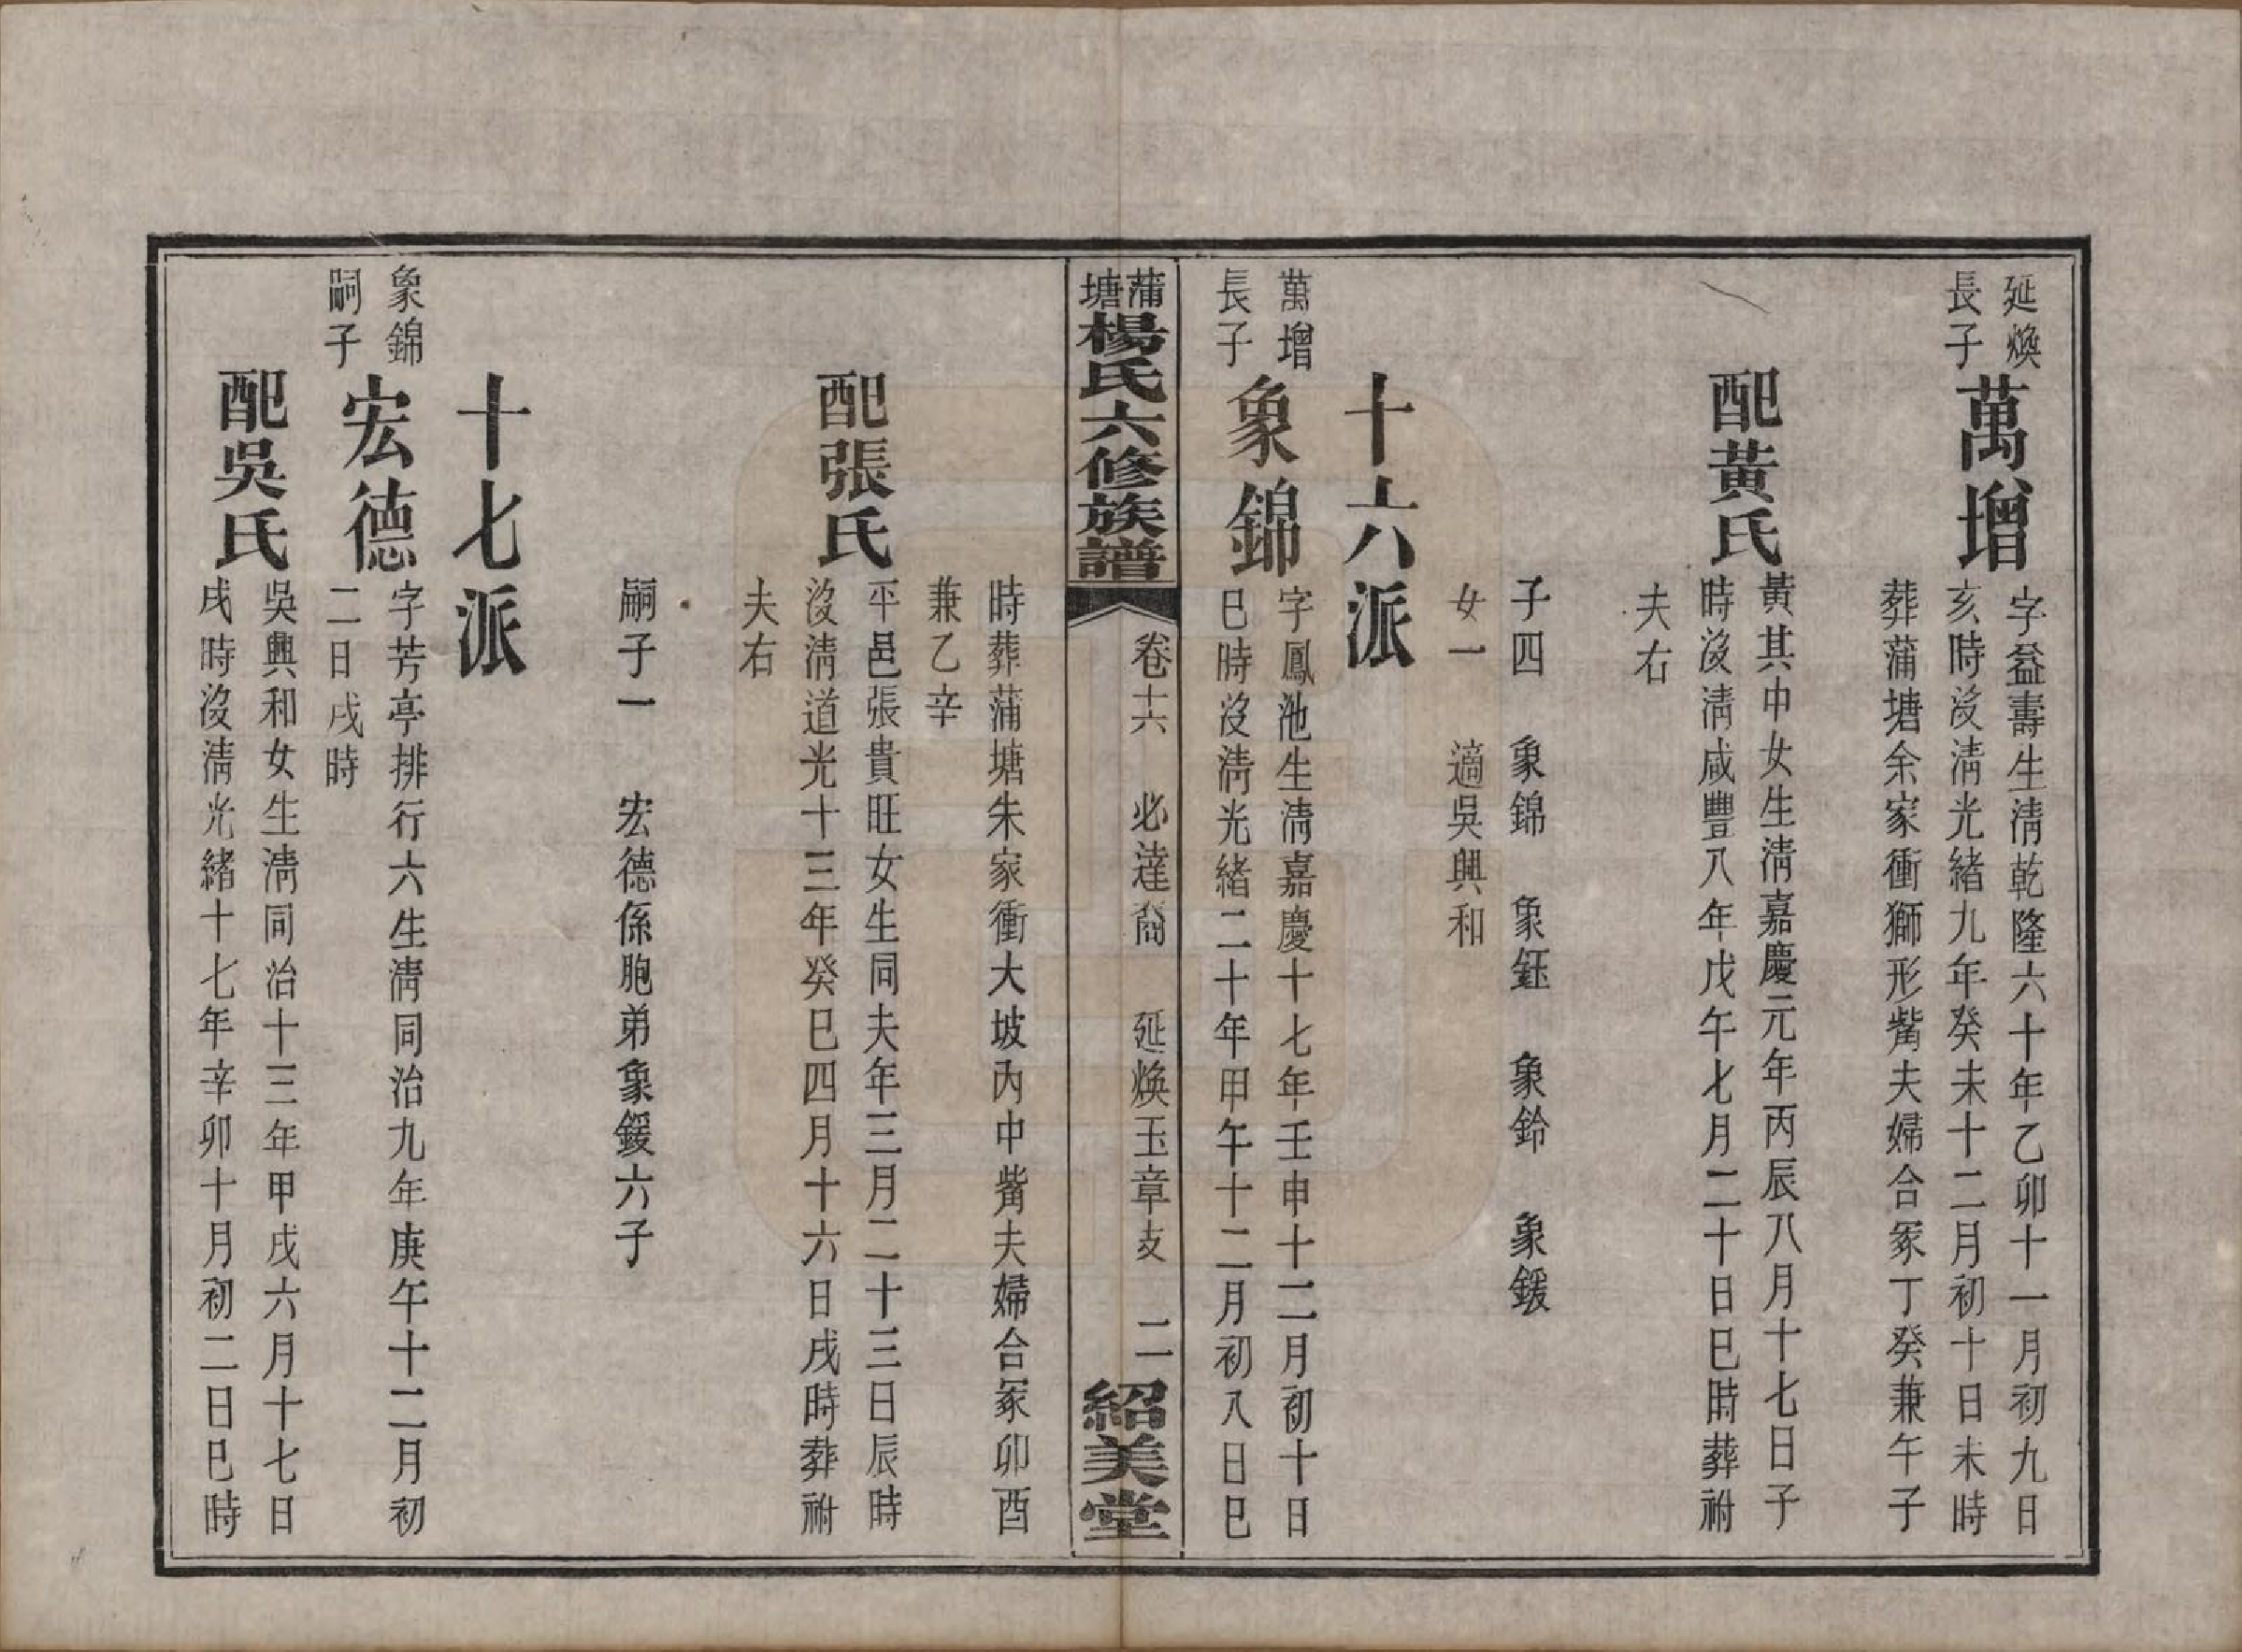 延煥
長子
萬增
字益壽生淸乾隆六十年乙卯十一月初九日
亥時沒淸光緖九年癸未十二月初十日未時
葬蒲塘余家衝獅形觜夫婦合冢丁癸兼午子
配黃氏
黃其中女生淸嘉慶元年丙辰八月十七日子
時沒淸咸豐八年戊午七月二十日巳時葬祔
夫右
子四 象錦 象鈺 象鈴 象鍰
女一 適吳興和
十六派
萬增
長子
象錦
字鳳池生淸嘉慶十七年壬申十二月初十日
巳時沒淸光緖二十年甲午十二月初八日巳
蒲塘楊氏六修族譜
卷十六 必達裔 延煥玉章支 二
紹美堂
時葬蒲塘朱家衝大坡內中觜夫婦合冢卯酉
兼乙辛
配張氏
平邑張貴旺女生同夫年三月二十三日辰時
沒淸道光十三年癸巳四月十六日戌時葬祔
夫右
嗣子一 宏德係胞弟象鍰六子
十七派
象錦
嗣子
宏德
字芳亭排行六生淸同治九年庚午十二月初
二日戌時
配吳氏
吳興和女生淸同治十三年甲戌六月十七日
戌時沒淸光緖十七年辛卯十月初二日巳時